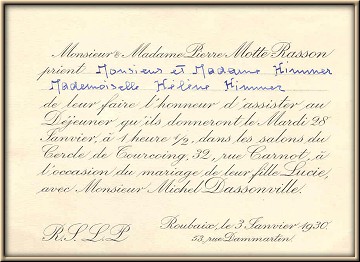 Monsieur & Madame Pierre Motte Rasson
prient Monsieur et Madame Himmer
Mademoiselle Hélène Himmer
de leur faire l'honneur d'assister au
Déjeuner qu'ils donneront le Mardi 28
Janvier, à 1 heure ½, dans les salons du
Cercle de Tourcoing, 32, rue Carnot, à
l'occasion du mariage de leur fille Lucie,
avec Monsieur Michel Dassonville.
R.S.L.P.
Roubaix, le 3 Janvier 1930.
53, rue Dammartin.